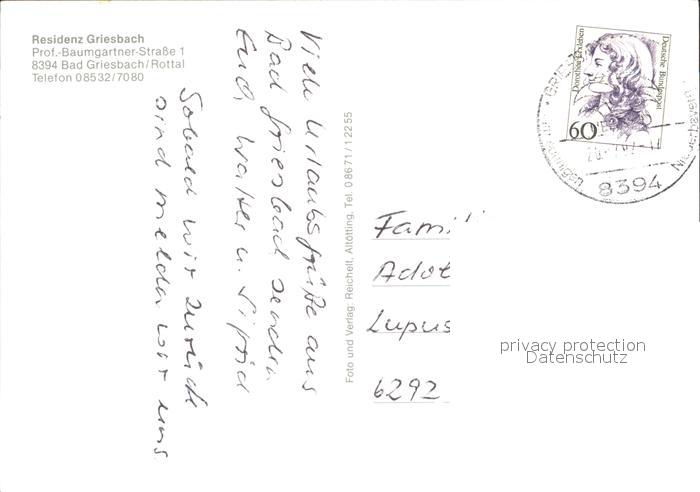 Residenz Griesbach
Prof.-Baumgartner-Straße 1
8394 Bad Griesbach/Rottal
Telefon 08532/7080
Viele Urlaubsgrüße aus
Bad Griesbach senden
Euch Walter u. Sigrid
Sobald wir zurück
sind melden wir uns
Foto und Verlag: Reichelt, Altötting, Tel. 08671/12255
Dorothea Erxleben
Deutsche Bundespost
60
8394
Famil
Adol
Lupus
6292
privacy protection
Datenschutz